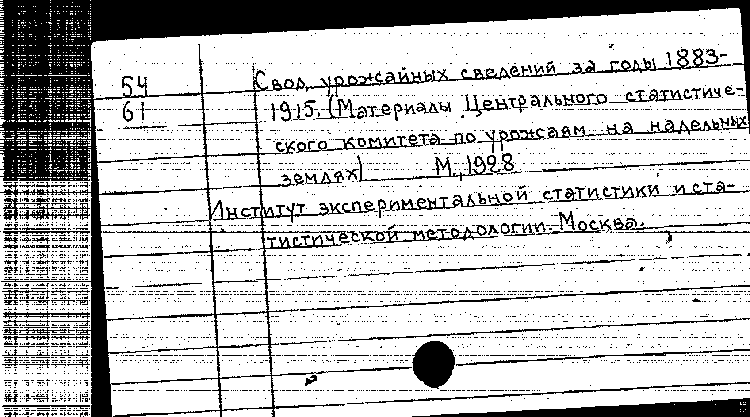 54
61
Свод урожайных сведений за годы 1883-
1915. (Материалы Центрального статистиче-
ского комитета по урожаям на надельных
землях) М., 1928
Институт экспериментальной статистики и ста-
тистической методологии. Москва.